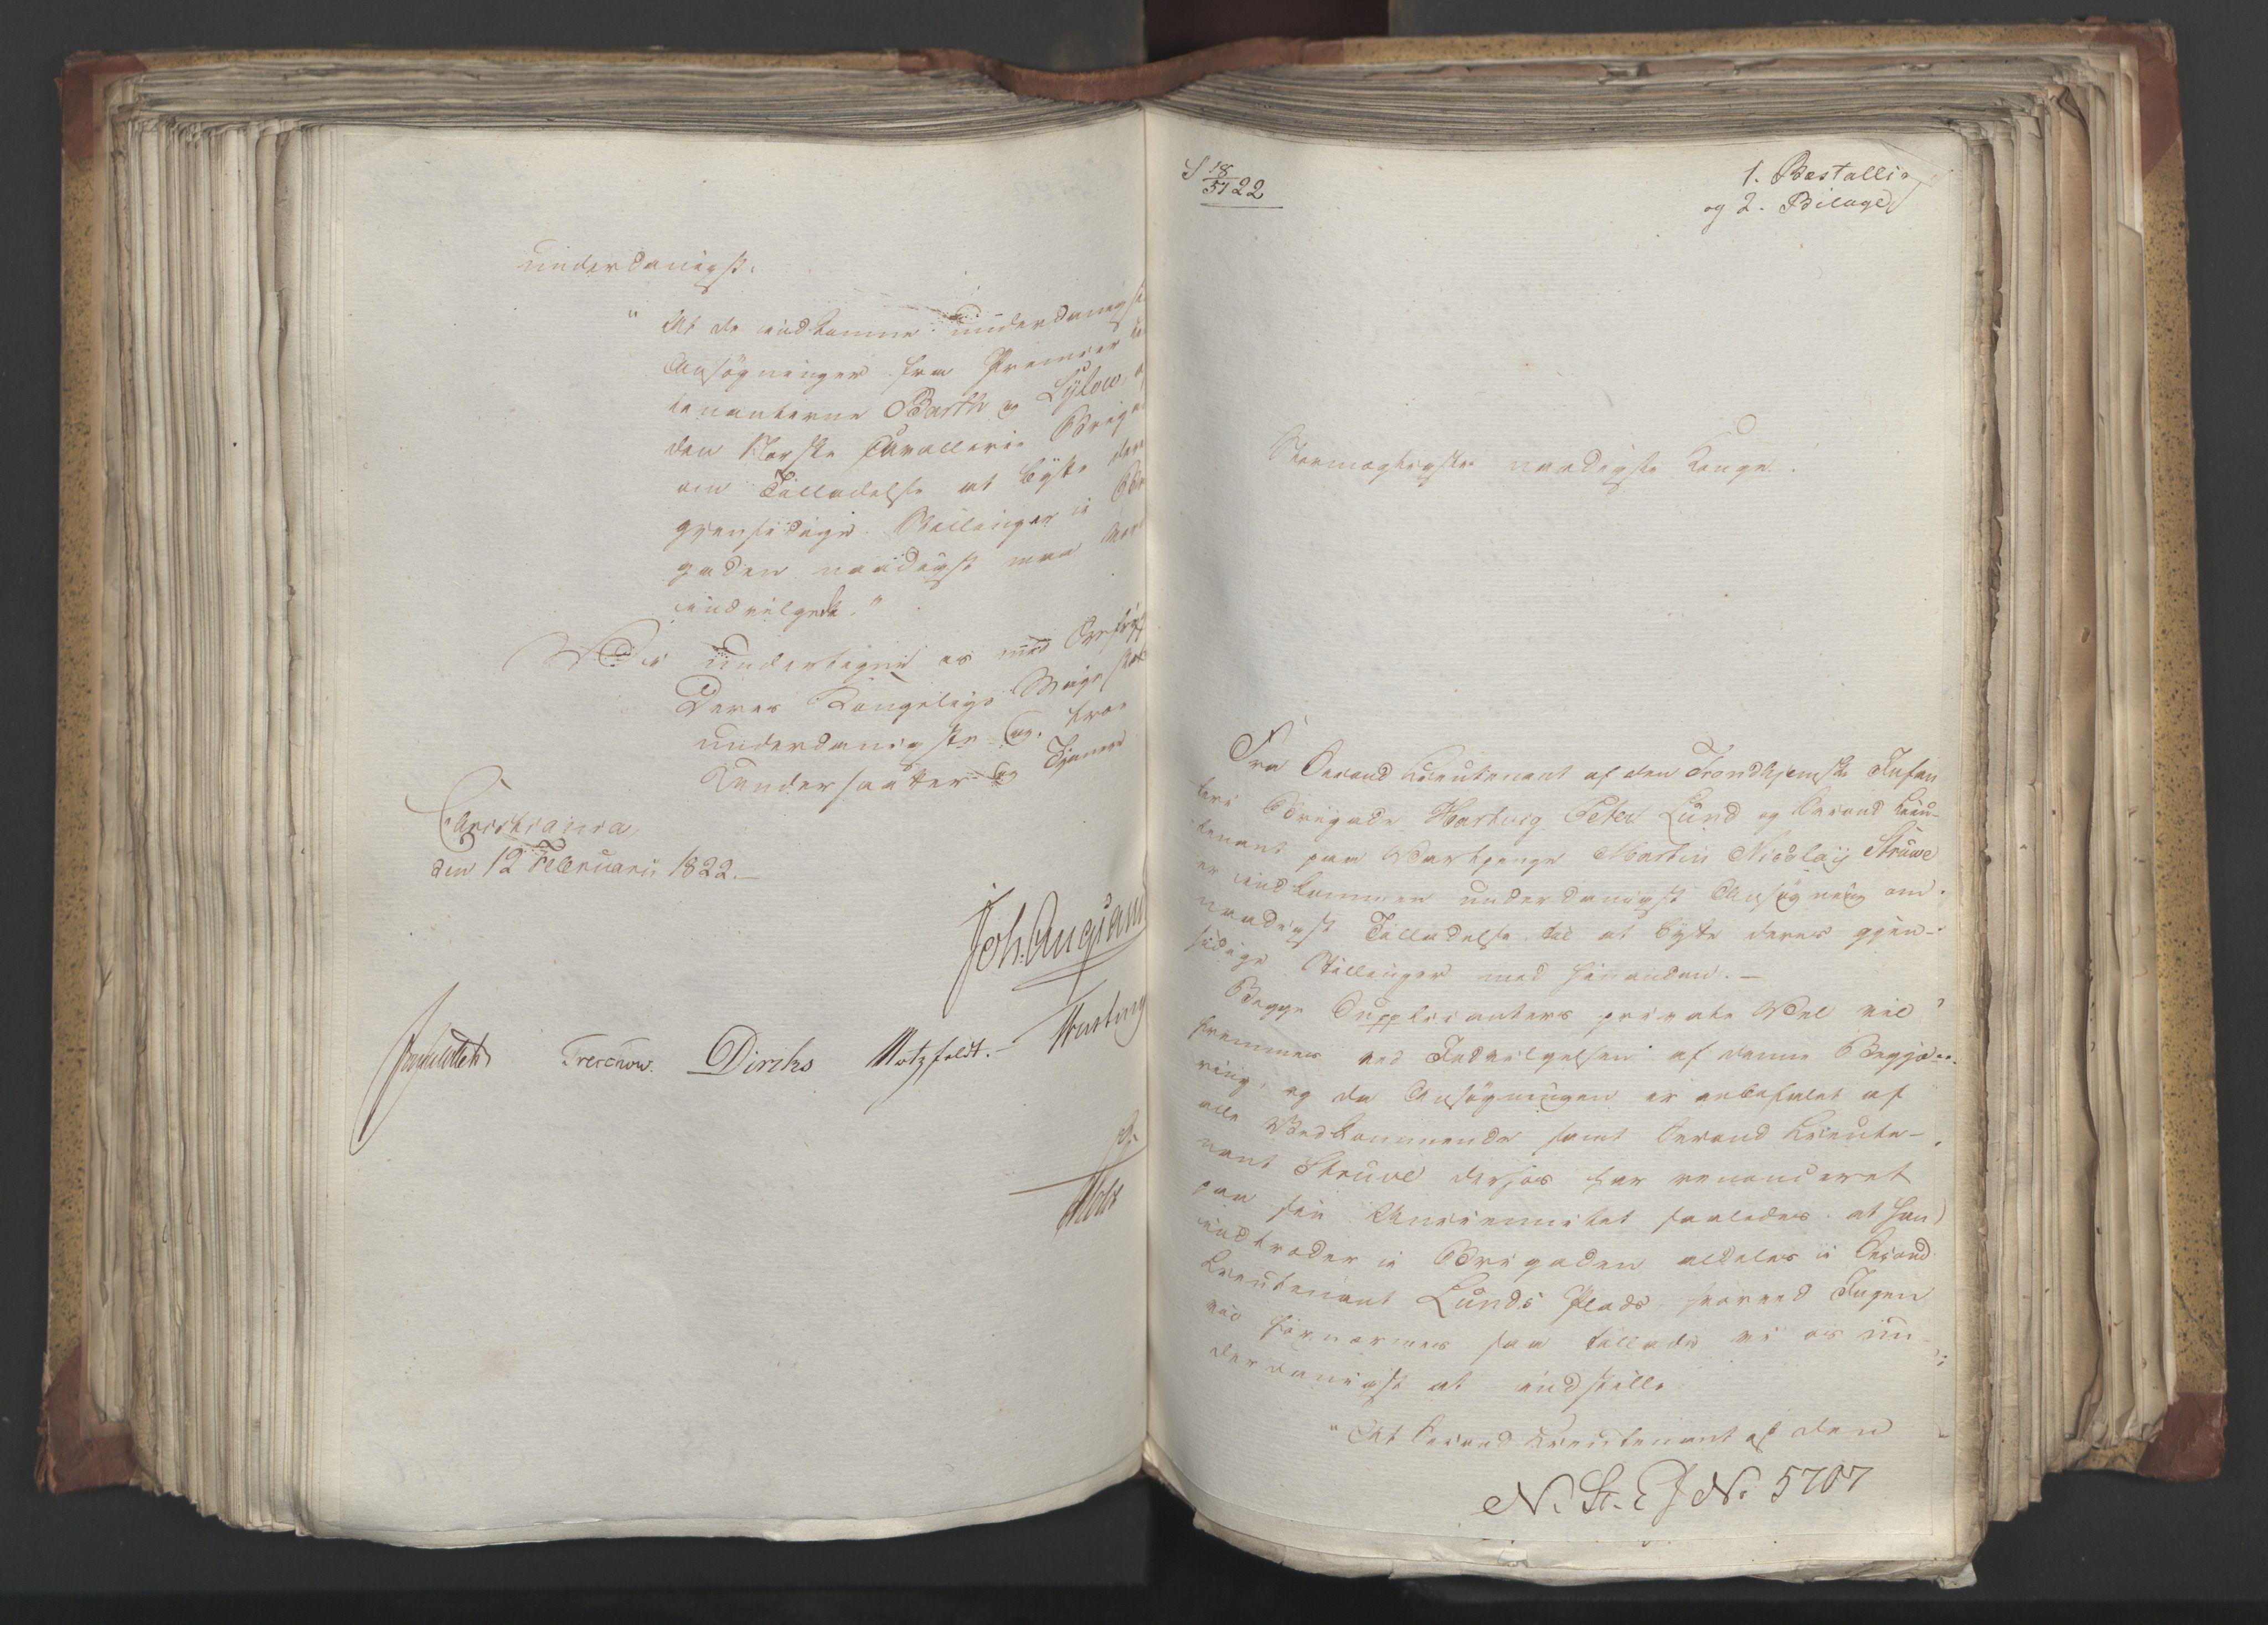 underdanigst:
"At de indkomne underdanigst
Ansögninger fra Premier
tenanterne Barth og Lÿtow,
den Norske Cavallerie Brig
om Tilladelse at bytte der
gjensidige Stillinger i Br
gaden naadigst maa
indvilges."
Vi undertegne os med
Deres Kongelige Majestæt
underdanigste og troe
Undersaatter og Tjenere
Christiania
den 12 Februarii 1822.
Treschow. Dircks Motzfeldt.
Holst
S 18/57 22
1. Bestalling
og 2. Bilage
Stormægtigste naadigste Konge!
Fra Second Lieutenant af den Trondhjemske Infan
terie Brigade Hartvig Peter Lund og Second Lieu-
tenant paa Vartpenge Martin Nicolaÿ Struwe
er indkommen underdanigst Ansögning om
naadigst Tilladelse til at bytte deres gjen-
sidige Stillinger med hinanden.—
Begge Supplicanters private Vel vil
fremmes ved Indvilgelsen af denne Begjæ-
ring, og da Ansögningen er anbefalet af
alle Vedkommende samt Second Lieute-
nant Struve derhos har renonceret
paa sin Anciennitet saaledes at han
indtræder i Brigaden aldeles i Second
Lieutenant Lunds Plads hvorved Ingen
vil fornærmes saa tillade vi os un-
derdanigst at indstille
"At Second Lieutenant af den
N. St. E J No 5707